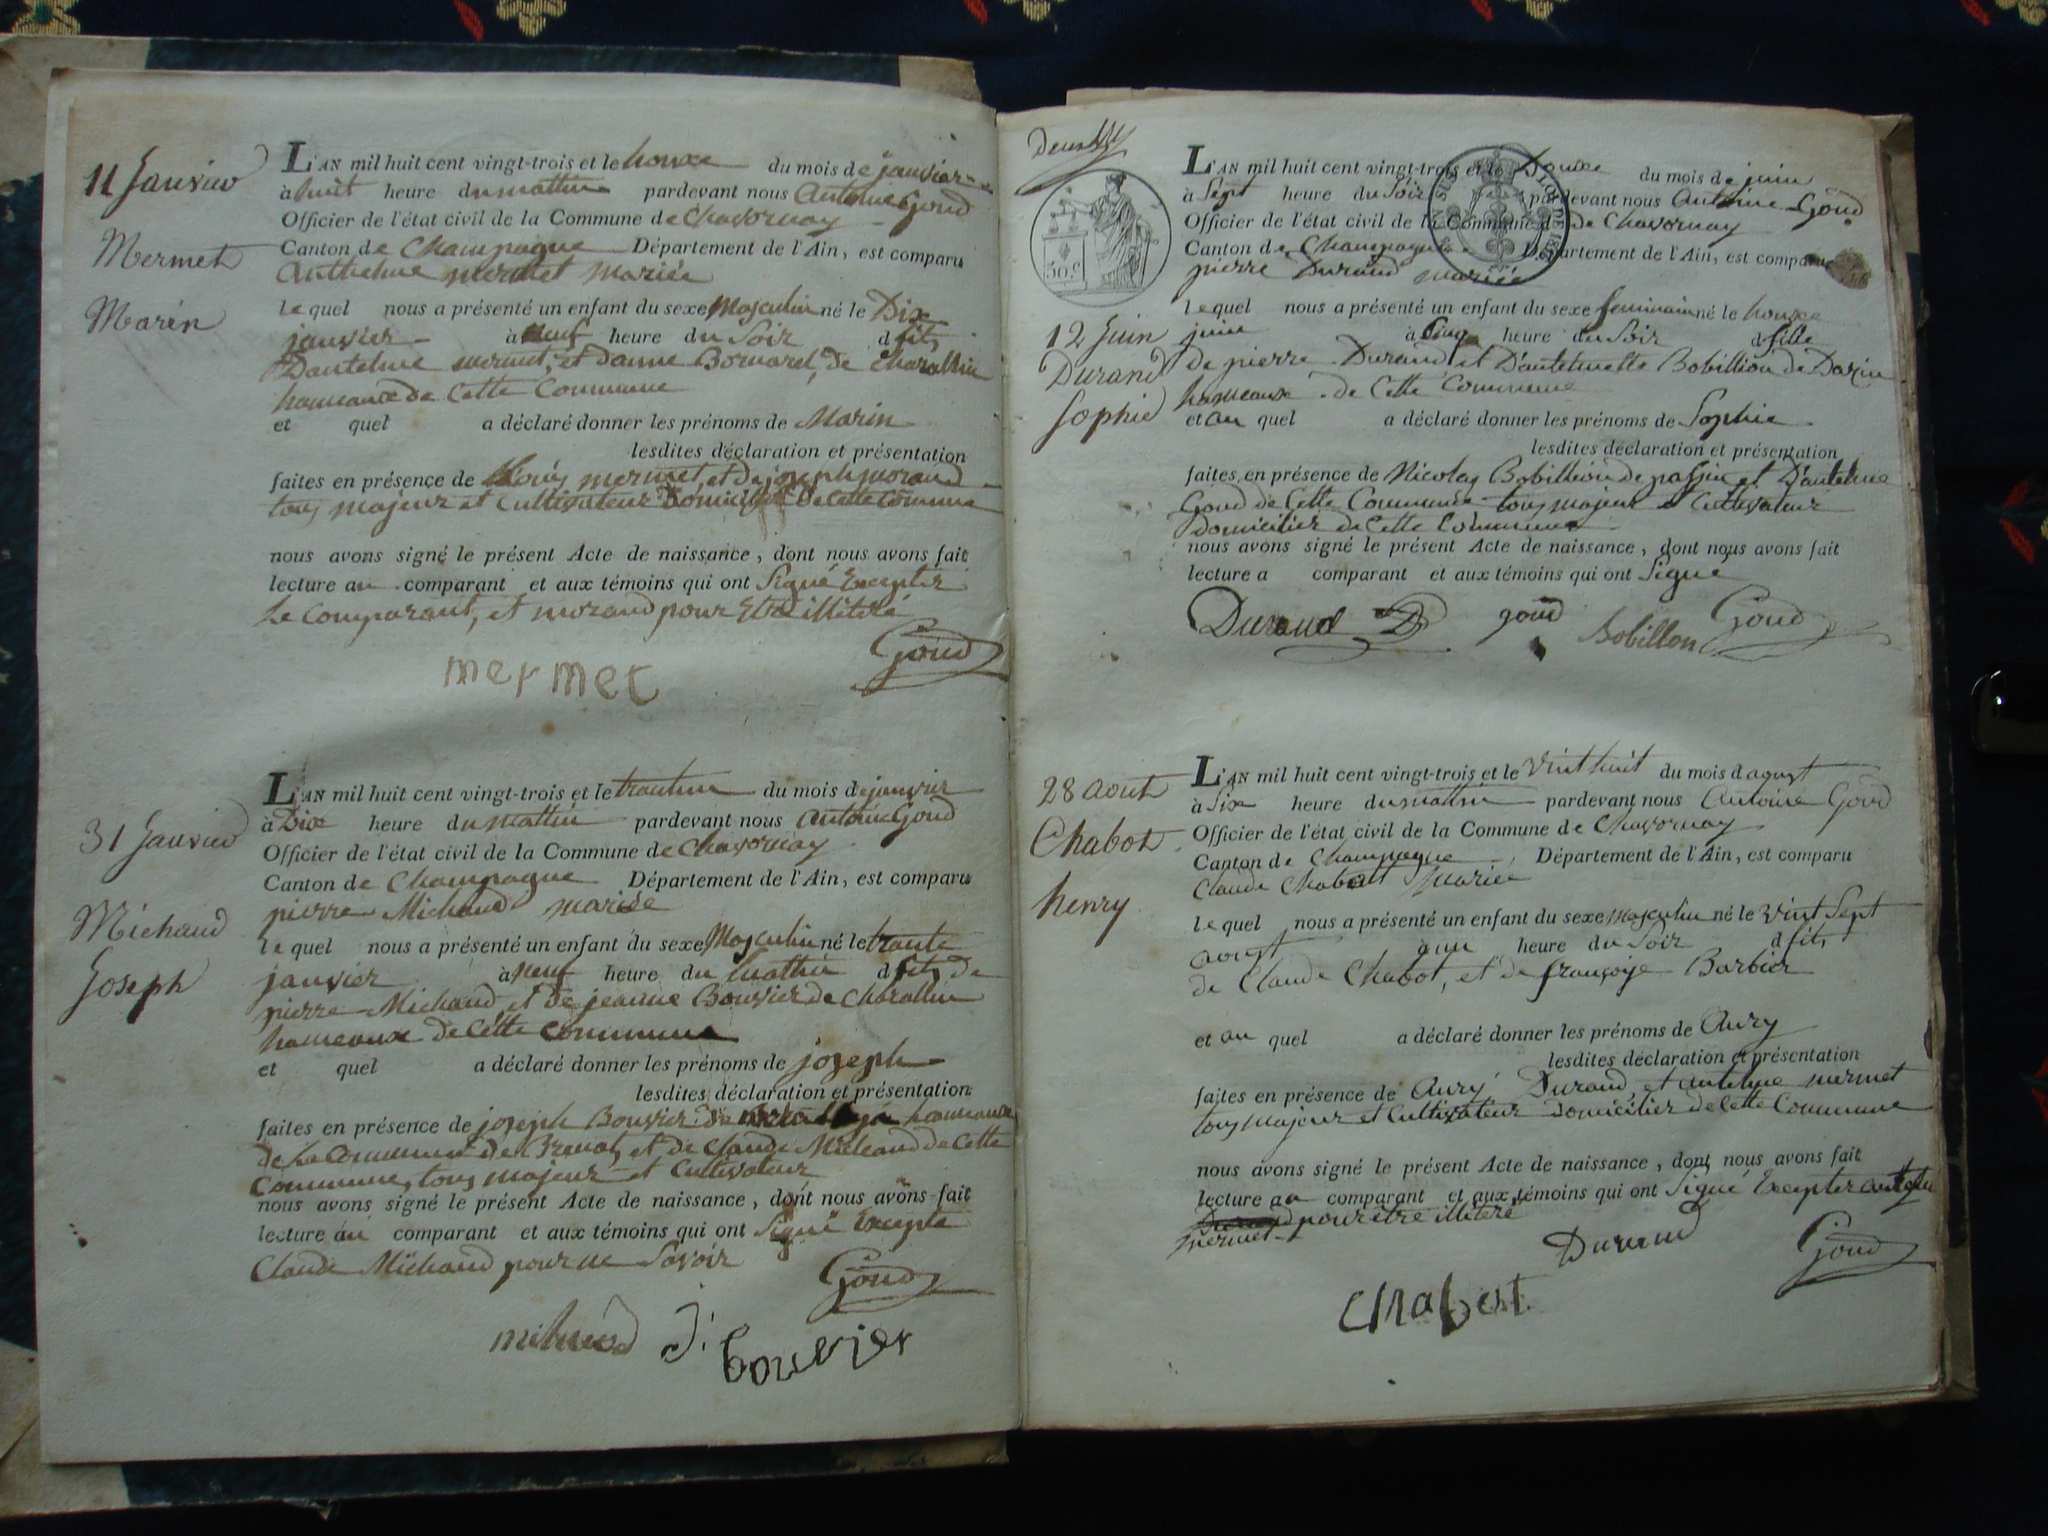 11 Janvier
Mermet
Marin
L'AN mil huit cent vingt-trois et le honze du mois de janvier
à huit heure du mattin pardevant nous Antoine Goud
Officier de l'état civil de la Commune de Chavornay
Canton de Champagne Département de l'Ain, est comparu
Anthelme mermet mariée
lequel nous a présenté un enfant du sexe Masculin né le Dix
janvier à neuf heure du Soir d fils
Dantelme mermet, et danne Bornarel, de Charallin
hameaux de Cette Commune
et quel a déclaré donner les prénoms de Marin
lesdites déclaration et présentation
faites en présence de Louis mermet, et de joseph morand
tous majeur et Cultivateur Domicilier de Cette Commune
nous avons signé le présent Acte de naissance, dont nous avons fait
lecture au comparant et aux témoins qui ont Signé Excepter
Le Comparant, et morand pour Etre illiteré
Goud
mermet
31 Janvier
Michaud
Joseph
L'AN mil huit cent vingt-trois et le trantun du mois de janvier
à Dix heure du mattin pardevant nous Antoine Goud
Officier de l'état civil de la Commune de Chavornay
Canton de Champagne Département de l'Ain, est comparu
pierre Michaud mariée
lequel nous a présenté un enfant du sexe Masculin né le trante
janvier à neuf heure du mathin d fils de
pierre Michaud et de jeanne Bouvier de Charallin
hameaux de Cette Commune
et quel a déclaré donner les prénoms de joseph
lesdites déclaration et présentation
faites en présence de joseph Bouvier de hameaux
de La Commune de Brenat, et de Claude Michaud de Cette
Commune, tous majeur et Cultivateur
nous avons signé le présent Acte de naissance, dont nous avons fait
lecture au comparant et aux témoins qui ont Signé Excepté
Claude Michaud pour ne Savoir
Goud
michaud J. bouvier
50 c
12 Juin
Durand
Sophie
L'AN mil huit cent vingt-trois et le Douze du mois de juin
à Sept heure du Soir pardevant nous Antoine Goud
Officier de l'état civil de la Commune de Chavornay
Canton de Champagne Département de l'Ain, est comparu
pierre Durand mariée
lequel nous a présenté un enfant du sexe feminain né le honze
juin à Cinq heure du Soir d fille
de pierre Durand et D'antelmette Bobillion de
hameaux de Cette Commune
et au quel a déclaré donner les prénoms de Sophie
lesdites déclaration et présentation
faites en présence de Nicolas Bobillion de passin et D'antelme
Goud de Cette Commune tous majeur et Cultivateur
Domicilier de Cette Commune
nous avons signé le présent Acte de naissance, dont nous avons fait
lecture a comparant et aux témoins qui ont Signé
Durand goud Bobillon Goud
28 Aout
Chabot
henry
L'AN mil huit cent vingt-trois et le Vinthuit du mois d agust
à Six heure du mattin pardevant nous Antoine Goud
Officier de l'état civil de la Commune de Chavornay
Canton de Champagne Département de l'Ain, est comparu
Claude Chabot mariée
lequel nous a présenté un enfant du sexe Masculin né le Vint Sept
aoust à une heure du Soir d fils
de Claude Chabot, et de françoise Barbier
et au quel a déclaré donner les prénoms de Anry
lesdites déclaration et présentation
faites en présence de Anry Durand et antelme mermet
tous majeur et Cultivateur domicilier de Cette Commune
nous avons signé le présent Acte de naissance, dont nous avons fait
lecture au comparant et aux témoins qui ont Signé Excepter
mermet pour être illiteré
Durand Goud
Chabot